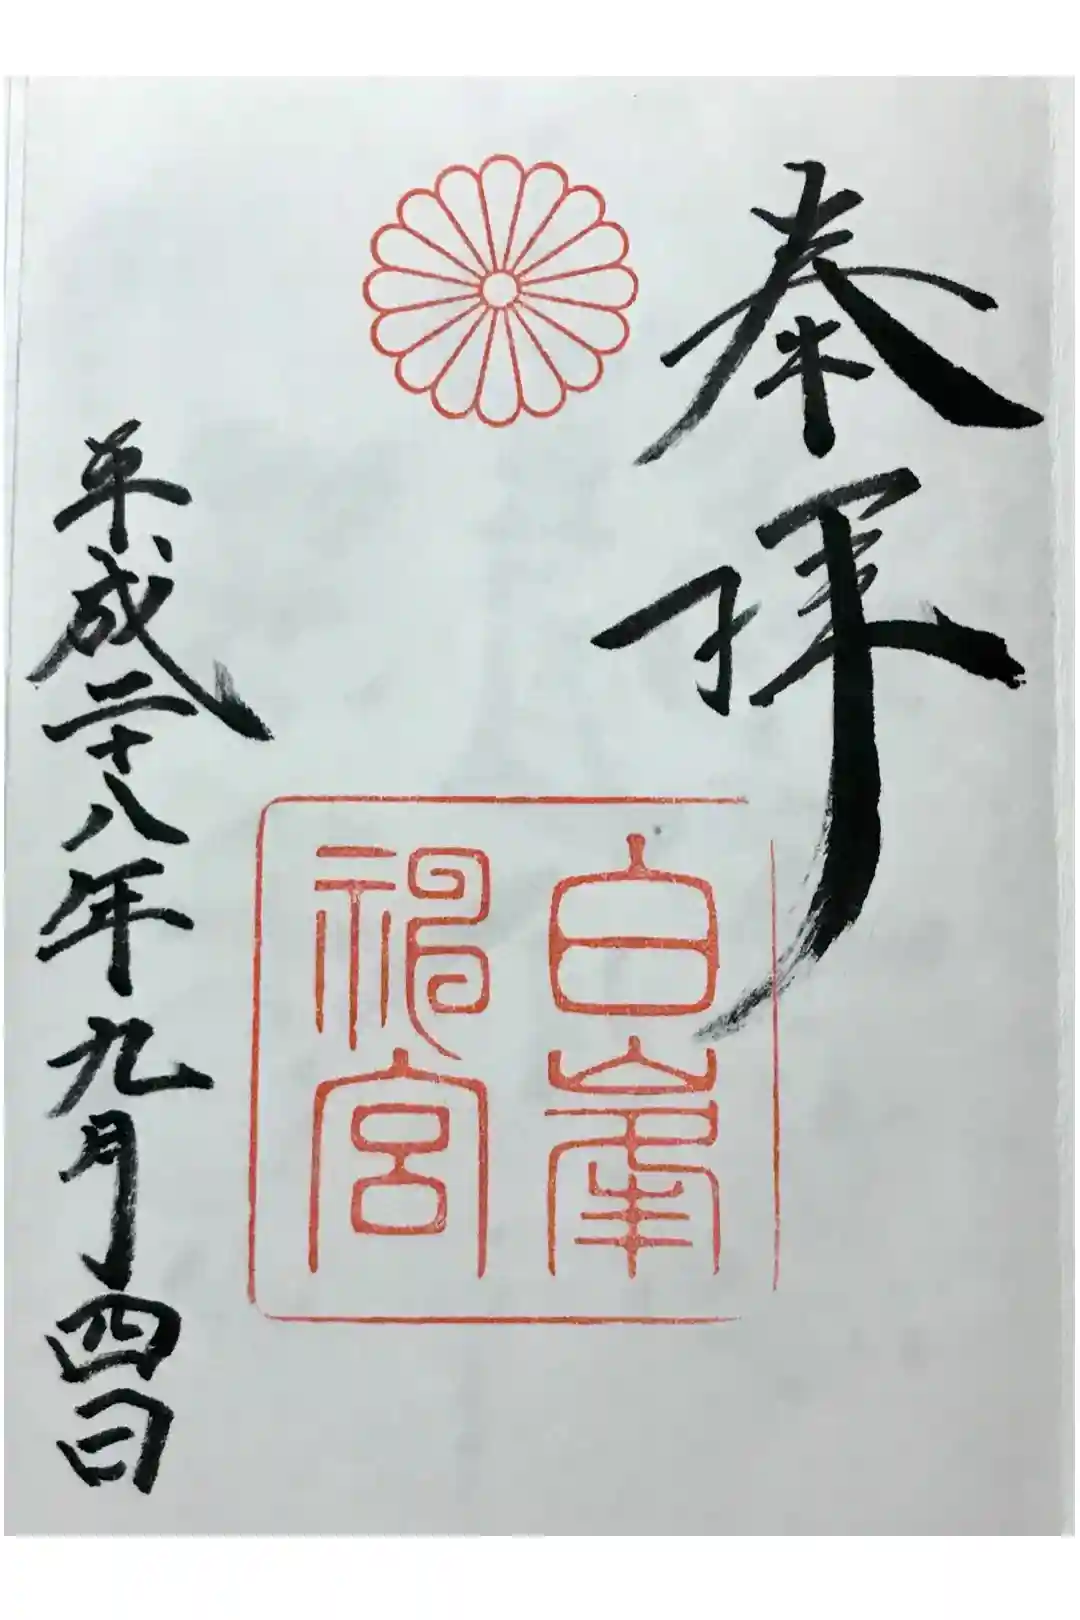 奉拝
白峯
神宮
平成二十八年九月四日